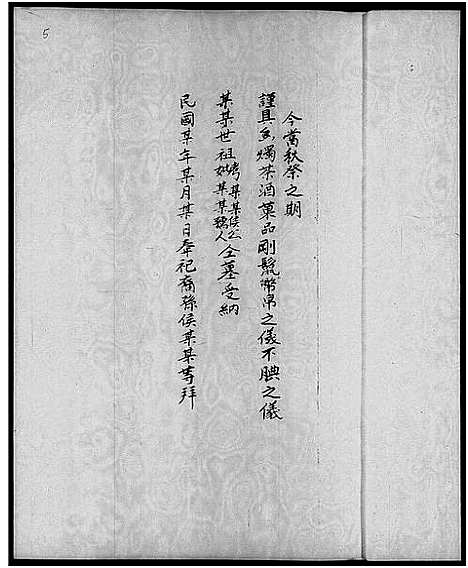 5
今當秋祭之期
謹具香燭茶酒菓品剛鬣幣帛之儀不腆之儀
某某世祖考某某侯公妣某某孺人仝墓受納
民國某年某月某日奉祀裔孫侯某某等拜